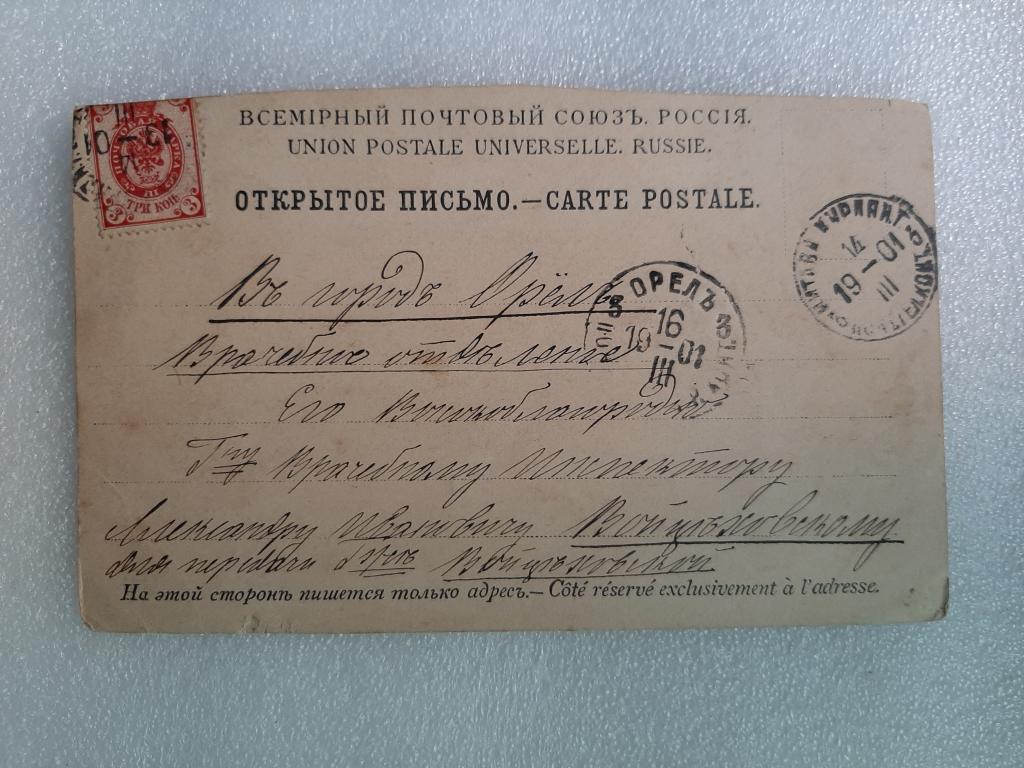 ВСЕМІРНЫЙ ПОЧТОВЫЙ СОЮЗЪ. РОССІЯ.
UNION POSTALE UNIVERSELLE. RUSSIE.
ОТКРЫТОЕ ПИСЬМО.—CARTE POSTALE.
ТРИ КОП.
3 3
13 – 01
III
14
19 – 01
III
Въ городъ Орёлъ
ОРЕЛЪ
16
19 – 01
III
Врачебное отдѣленіе
Его Высокоблагородію
Гну Врачебному Инспектору
Александру Ивановичу Войцѣховскому
для передачи Войцѣховской
На этой сторонѣ пишется только адресъ.— Côté réservé exclusivement à l'adresse.